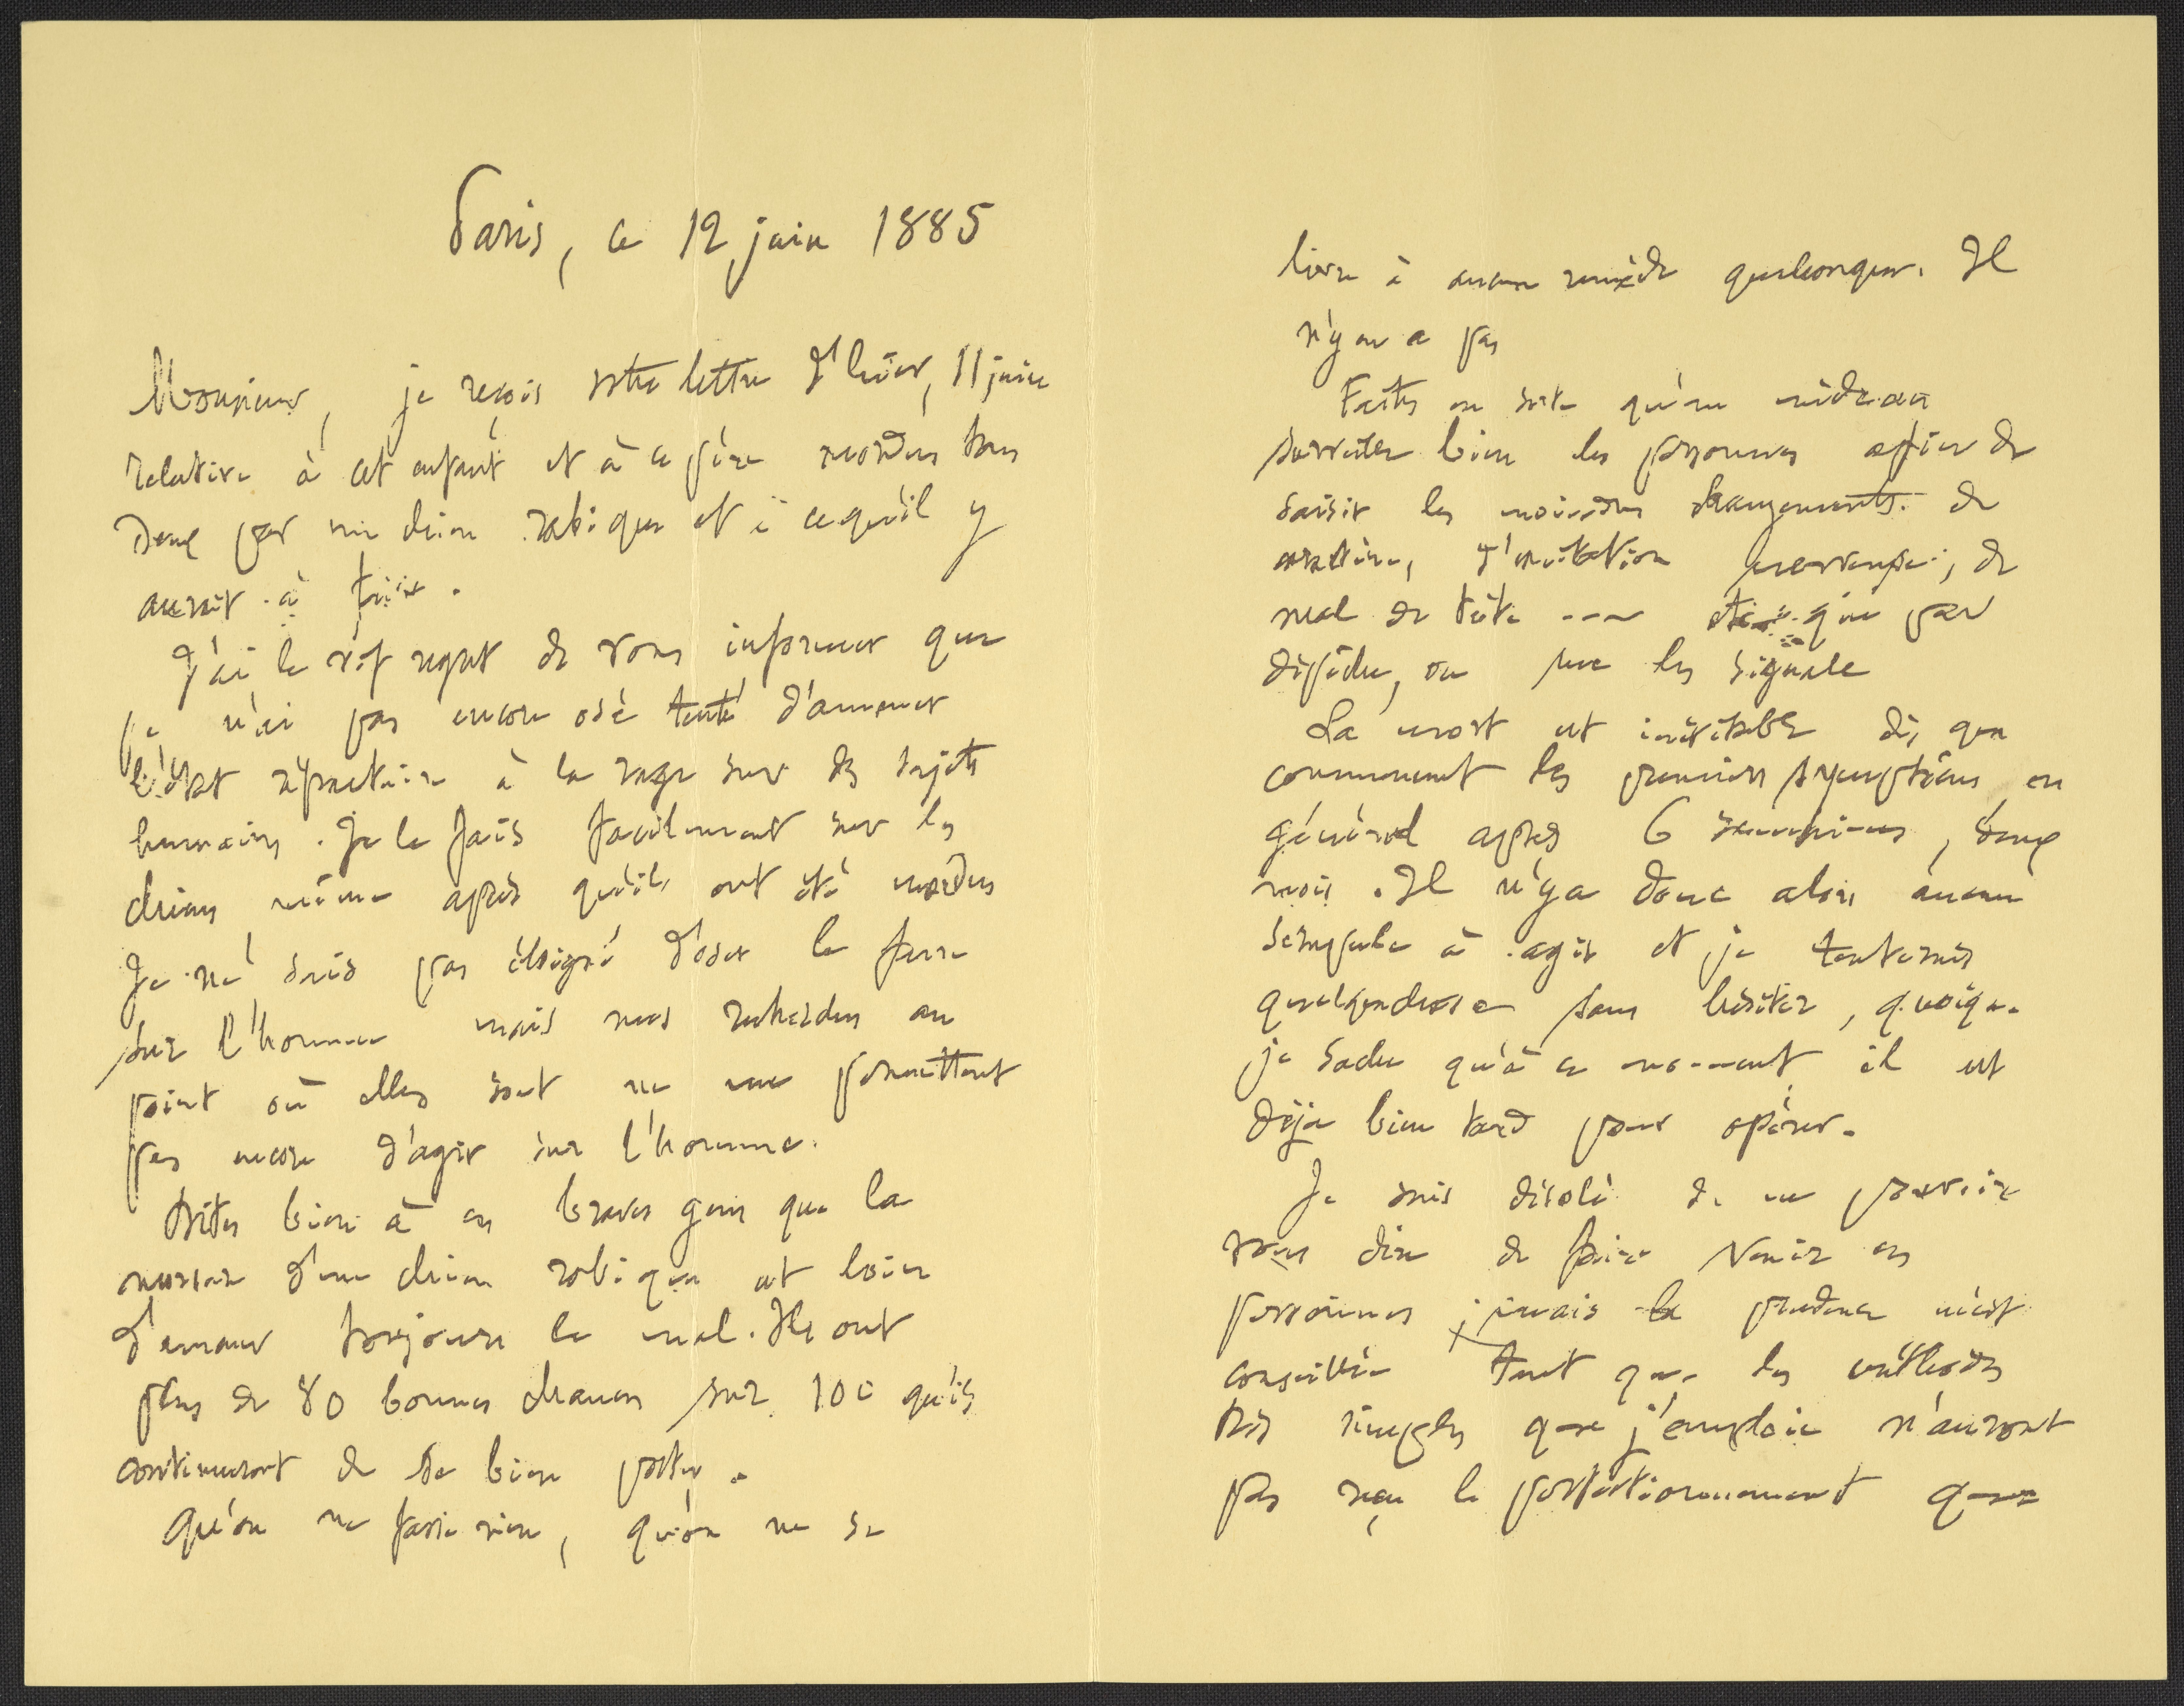 Paris, ce 12 juin 1885
Monsieur, je reçois votre lettre d'hier, 11 juin
relative à cet enfant et à ce père mordus tous
deux par un chien rabique et à ce qu'il y
aurait à faire.
J'ai le vif regret de vous informer que
je n'ai pas encore osé tenté d'amener
l'état réfractaire à la rage sur des sujets
humains. Je le fais facilement sur les
chiens même après qu'ils ont été mordus
Je ne suis pas éloigné d'oser le faire
sur l'homme mais mes recherches au
point où elles sont ne me permettent
pas encore d'agir sur l'homme.
Dites bien à ces braves gens que la
morsure d'un chien rabique est loin
d'amener toujours le mal. Ils ont
plus de 80 bonnes chances sur 100 qu'ils
continueront de se bien porter.
Qu'on ne fasse rien, qu'on ne se
livre à aucun remède quelconque. Il
n'y en a pas
Faites en sorte qu'un médecin
surveille bien les personnes afin de
saisir les moindres changements de
caractère, d'excitation nerveuse, de
mal de tête --- et que par
dépêche, on me les signale
La mort est inévitable dès que
commencent les premiers symptômes en
général après 6 semaines, deux
mois. Il n'y a donc alors aucun
scrupule à agir et je tenterais
quelque chose sans hésiter, quoique
je sache qu'à ce moment il est
déjà bien tard pour opérer.
Je suis désolé de ne pouvoir
vous dire de faire venir ces
personnes; mais la prudence m'est
conseillée tant que les méthodes
très simples que j'emploie n'auront
pas reçu le perfectionnement que